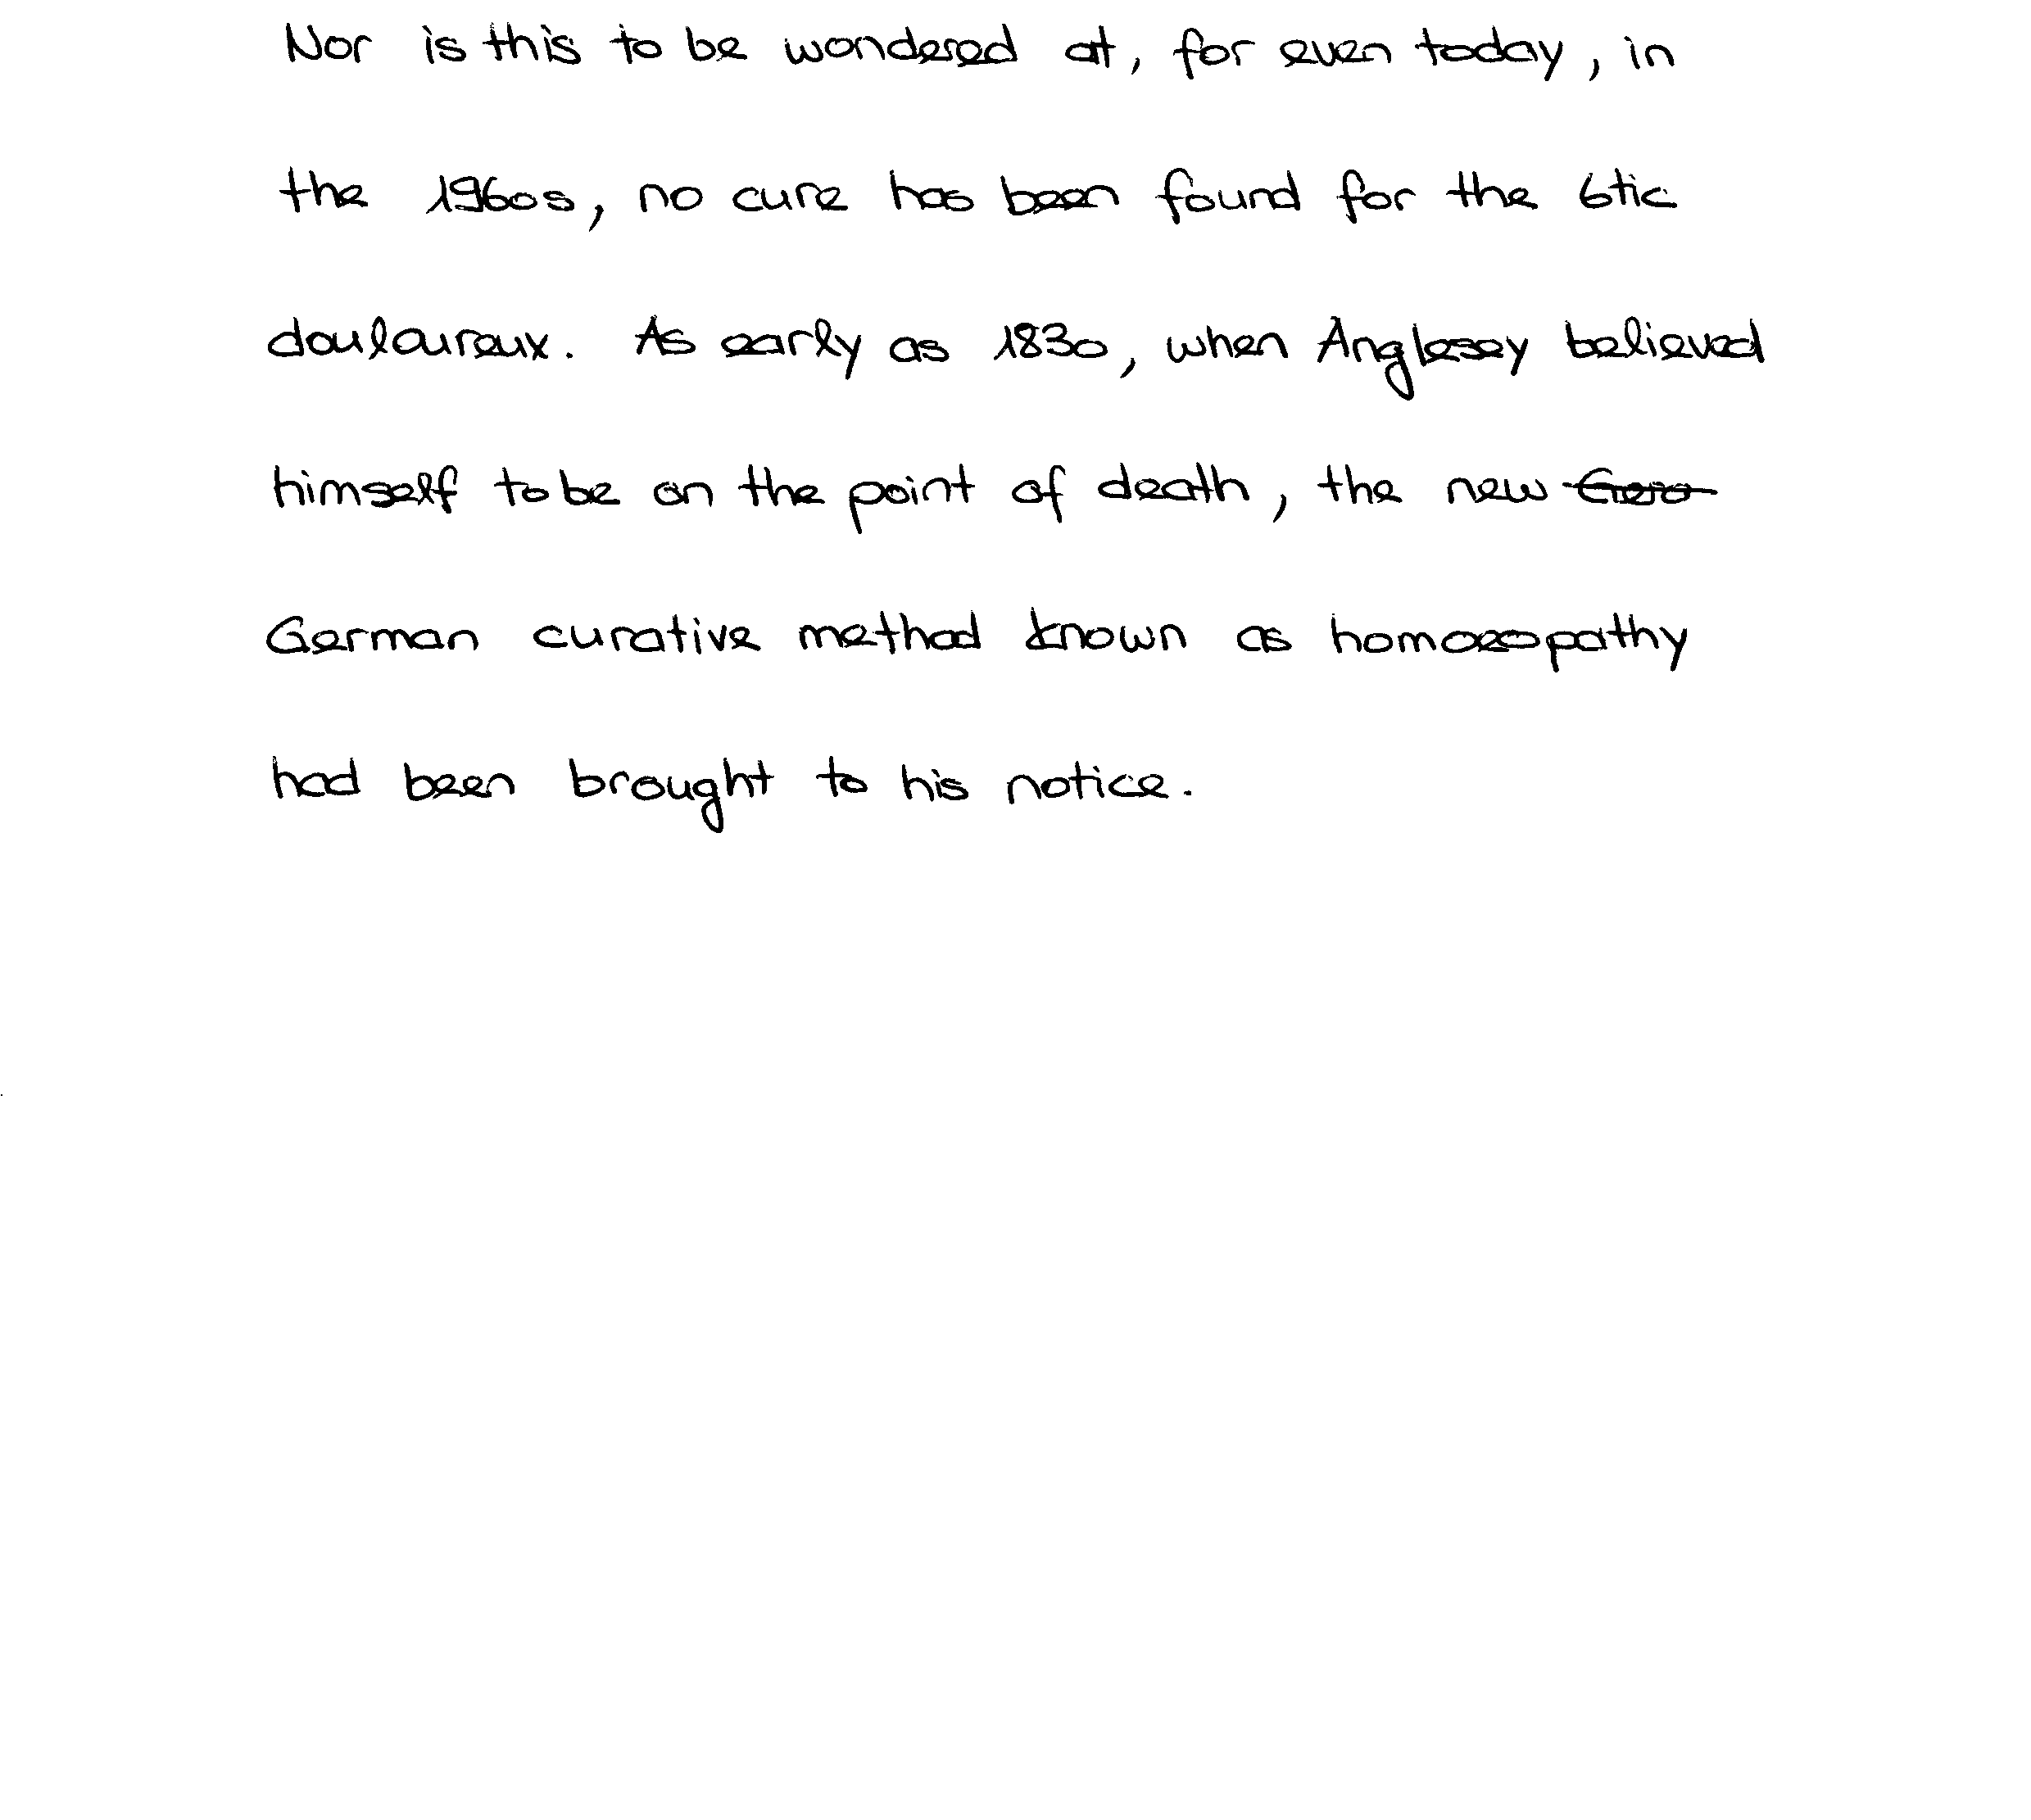 Nor is this to be wondered at, for even today, in
the 1960s, no cure has been found for the 6tic
douloureux. As early as 1830, when Anglesey believed
himself to be on the point of death, the new
German curative method known as homoeopathy
had been brought to his notice.